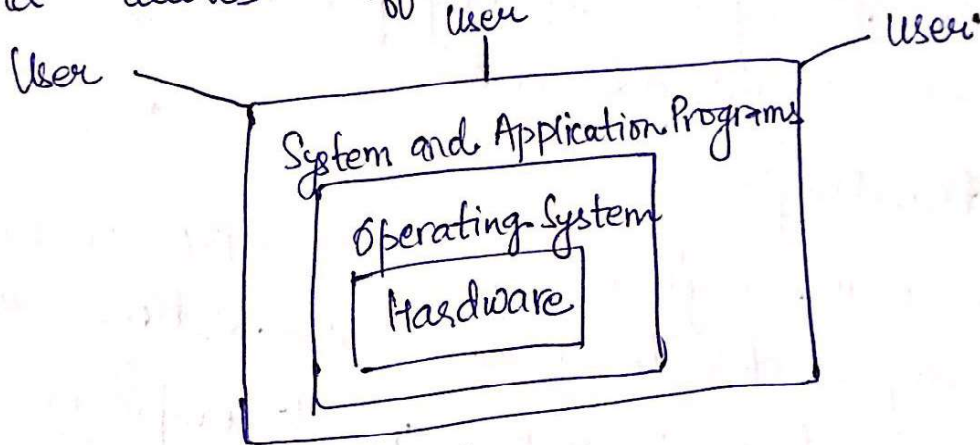 User
User
User
System and Application Programs
Operating System
Hardware